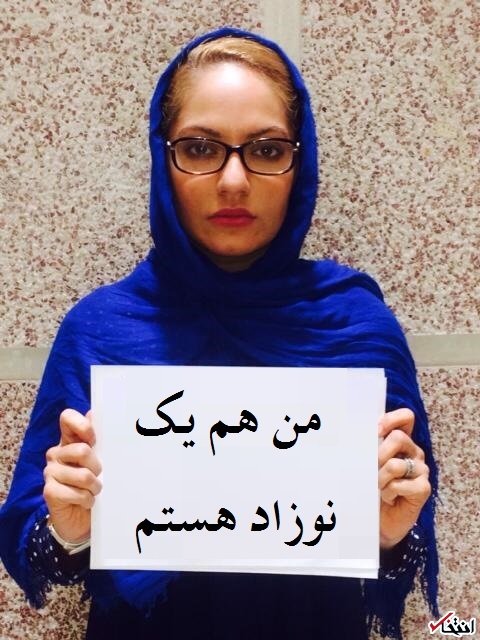 من هم یک
نوزاد هستم
انتخاب